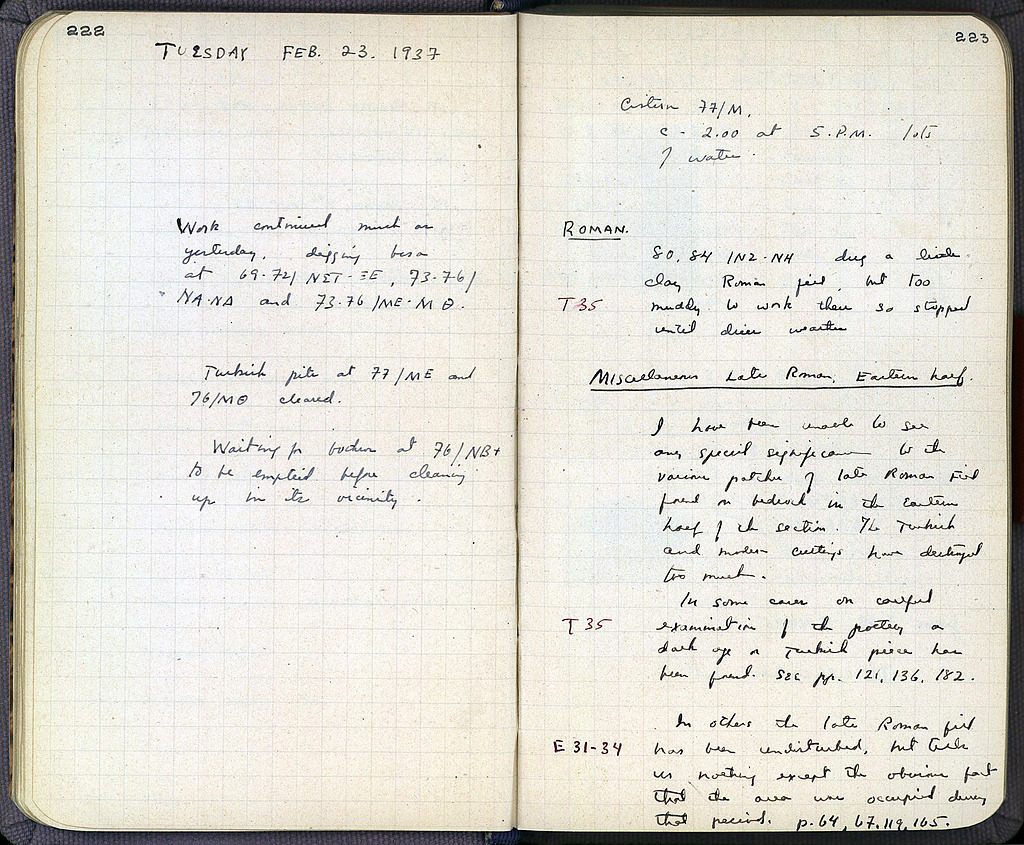 222
TUESDAY FEB. 23. 1937
Work continued much as
yesterday, digging
at 69-72/ ΝΣΤ-ΞΕ, 73-76/
ΝΑ-ΝΔ and 73-76/ΜΕ-ΜΘ.
Turkish pits at 77/ΜΕ and
76/ΜΘ cleared.
Waiting for bothros at 76/ΝΒ+
to be emptied before cleaning
up in its vicinity.
223
Cistern 77/Μ.
c - 2.00 at 5. P.M. lots
of water.
ROMAN.
80, 84 /ΝΖ-ΝΗ dug a little
clay Roman fill, but too
T 35
muddy to work there so stopped
until drier weather
Miscellaneous Late Roman, Eastern half.
I have been unable to see
any special significance to the
various patches of late Roman fill
found on bedrock in the Eastern
half of the section. The Turkish
and modern cuttings have destroyed
too much.
In some cases on careful
T 35
examination of the pottery a
dark age or Turkish piece has
been found. See pp. 121, 136, 182.
In others the late Roman fill
E 31-34
has been undisturbed, but tells
us nothing except the obvious fact
that the area was occupied during
that period. p. 64, 67, 119, 165.